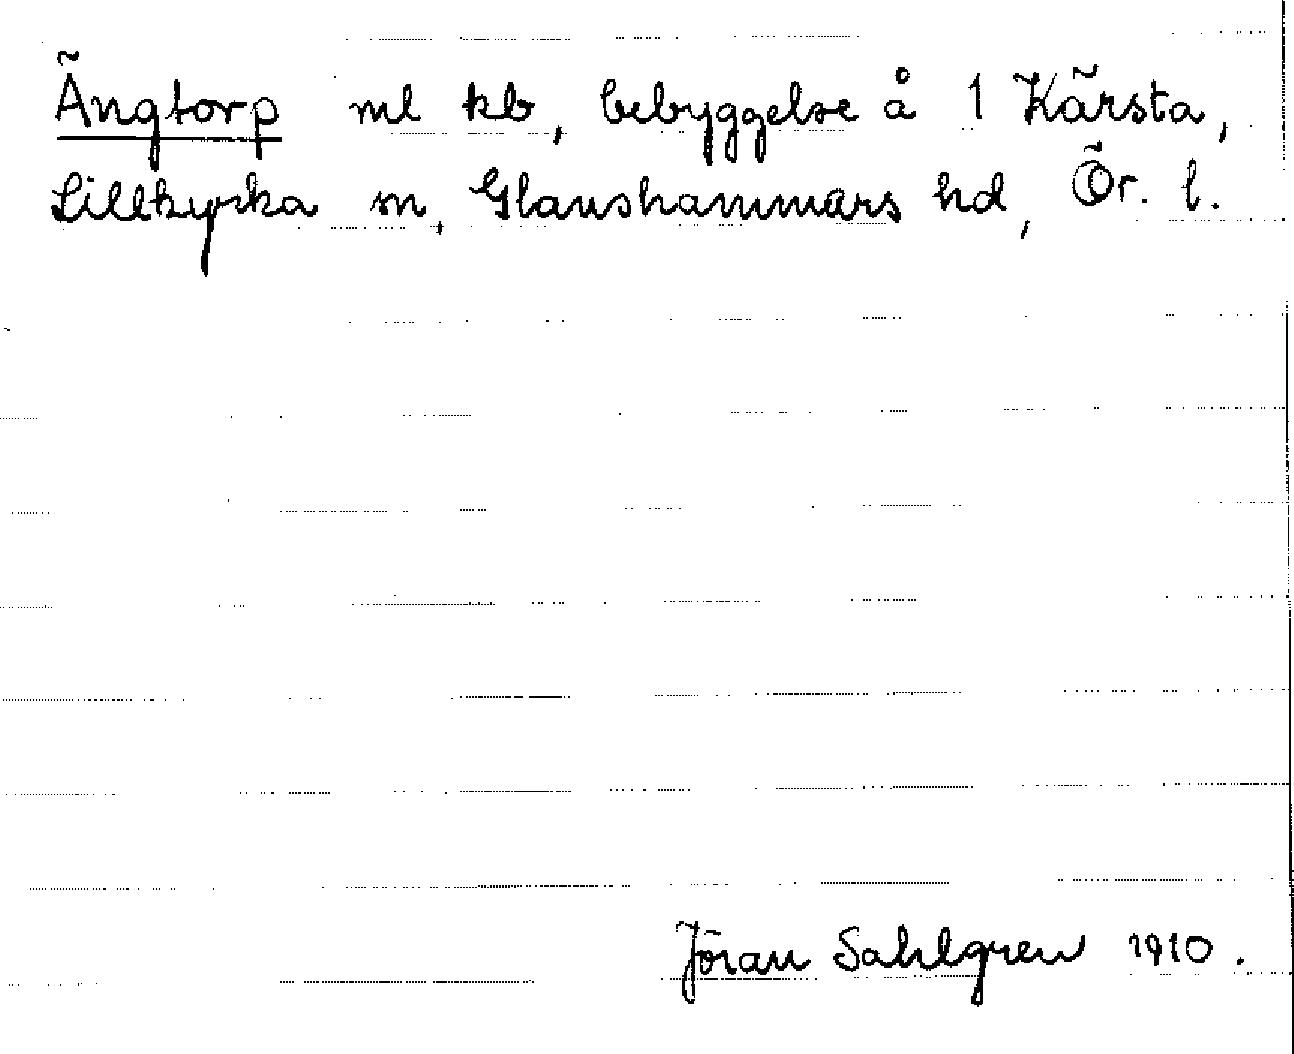 Ängtorp ml kb, bebyggelse å 1 Kärsta,
Lillkyrka sn, Glanshammars hd, Ör. l.
Jöran Sahlgren 1910.